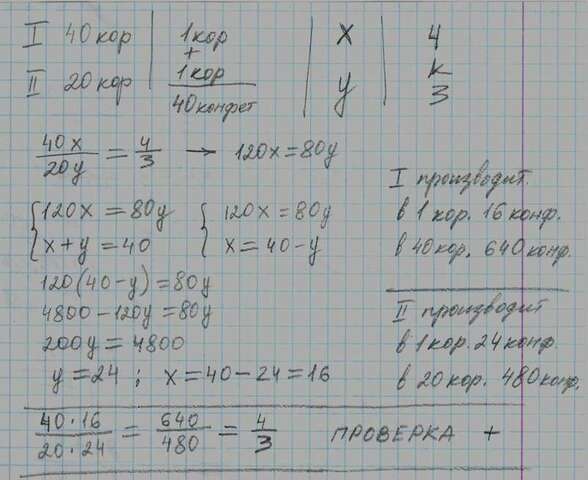 I 40 кор | 1 кор | x | 4
+ к
II 20 кор | 1 кор | y | 3
40 конфет
40x/20y = 4/3 → 120x = 80y
{120x = 80y {120x = 80y
{x + y = 40 {x = 40 - y
120(40 - y) = 80y
4800 - 120y = 80y
200y = 4800
y = 24 ; x = 40 - 24 = 16
I производит
в 1 кор. 16 конф.
в 40 кор. 640 конф.
II производит
в 1 кор. 24 конф.
в 20 кор. 480 конф.
40·16/20·24 = 640/480 = 4/3 ПРОВЕРКА +